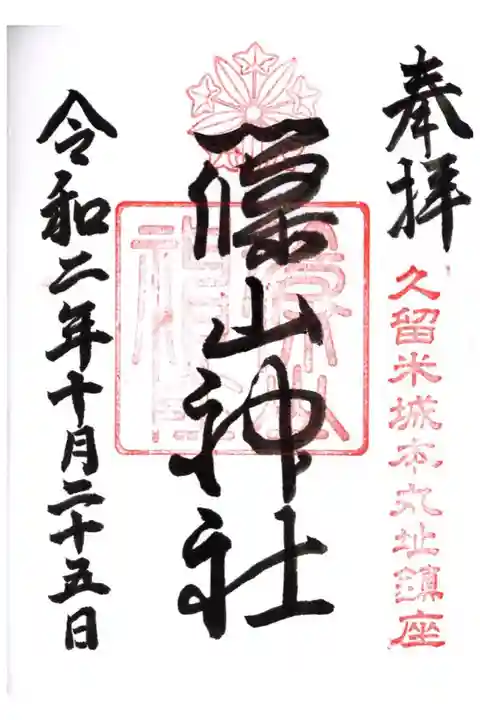 奉拝
久留米城本丸址鎮座
篠山神社
篠山神社
令和二年十月二十五日